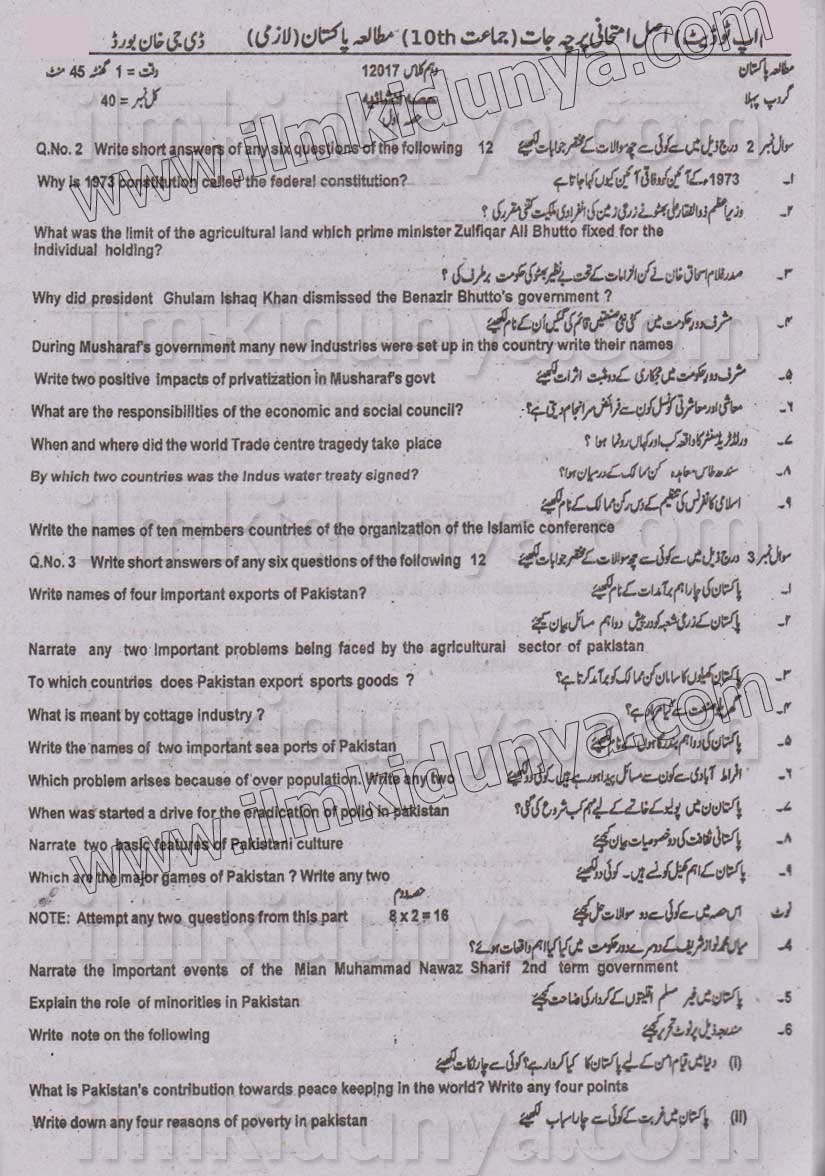 (اپ ٹو ڈیٹ) اصل امتحانی پرچہ جات (جماعت 10th) مطالعہ پاکستان (لازمی) ڈی جی خان بورڈ
مطالعہ پاکستان دہم کلاس 12017 وقت = 1 گھنٹہ 45 منٹ
گروپ پہلا حصہ انشائیہ کل نمبر = 40
حصہ اول
Q.No. 2 Write short answers of any six questions of the following 12 سوال نمبر 2 درج ذیل میں سے کوئی سے چھ سوالات کے مختصر جوابات لکھیئے
Why is 1973 constitution called the federal constitution? 1973ء کے آئین کو وفاقی آئین کیوں کہا جاتا ہے ۱۔
۲۔ وزیراعظم ذوالفقار علی بھٹو نے زرعی زمین کی انفرادی ملکیت کتنی مقرر کی ؟
What was the limit of the agricultural land which prime minister Zulfiqar Ali Bhutto fixed for the
individual holding?
۳۔ صدر غلام اسحاق خان نے کن الزامات کے تحت بے نظیر بھٹو کی حکومت برطرف کی ؟
Why did president Ghulam Ishaq Khan dismissed the Benazir Bhutto's government ?
۴۔ مشرف دور حکومت میں کئی نئی صنعتیں قائم کی گئیں اُن کے نام لکھیئے
During Musharaf's government many new industries were set up in the country write their names
Write two positive impacts of privatization in Musharaf's govt مشرف دور حکومت میں نجکاری کے دو مثبت اثرات لکھیئے ۵۔
What are the responsibilities of the economic and social council? معاشی اور معاشرتی کونسل کون سے فرائض سرانجام دیتی ہے؟ ۶۔
When and where did the world Trade centre tragedy take place ورلڈ ٹریڈ سنٹر کا واقعہ کب اور کہاں رونما ہوا ؟ ۷۔
By which two countries was the Indus water treaty signed? سندھ طاس معاہدہ کن ممالک کے درمیان ہوا؟ ۸۔
۹۔ اسلامی کانفرنس کی تنظیم کے دس رکن ممالک کے نام لکھیئے
Write the names of ten members countries of the organization of the Islamic conference
Q.No. 3 Write short answers of any six questions of the following 12 سوال نمبر 3 درج ذیل میں سے کوئی سے چھ سوالات کے مختصر جوابات لکھیئے
Write names of four important exports of Pakistan? پاکستان کی چار اہم برآمدات کے نام لکھیئے ۱۔
۲۔ پاکستان کے زرعی شعبہ کو درپیش دو اہم مسائل بیان کیجئے
Narrate any two important problems being faced by the agricultural sector of pakistan
To which countries does Pakistan export sports goods ? پاکستان کھیلوں کا سامان کن ممالک کو برآمد کرتا ہے؟ ۳۔
What is meant by cottage industry ? گھریلو صنعت سے کیا مراد ہے؟ ۴۔
Write the names of two important sea ports of Pakistan پاکستان کی دو اہم بندرگاہوں کے نام لکھیئے ۵۔
Which problem arises because of over population. Write any two افراط آبادی سے کون سے مسائل پیدا ہو رہے ہیں۔ کوئی دو لکھیئے ۶۔
When was started a drive for the eradication of polio in pakistan پاکستان میں پولیو کے خاتمے کے لیے مہم کب شروع کی گئی؟ ۷۔
Narrate two basic features of Pakistani culture پاکستانی ثقافت کی دو خصوصیات بیان کیجئے ۸۔
Which are the major games of Pakistan ? Write any two پاکستان کے اہم کھیل کونسے ہیں۔ کوئی دو لکھیئے ۹۔
حصہ دوم
NOTE: Attempt any two questions from this part 8 x 2 = 16 نوٹ اس حصہ میں سے کوئی سے دو سوالات حل کیجئے
4۔ میاں محمد نواز شریف کے دوسرے دور حکومت میں کیا کیا اہم واقعات ہوئے؟
Narrate the important events of the Mian Muhammad Nawaz Sharif 2nd term government
Explain the role of minorities in Pakistan پاکستان میں غیر مسلم اقلیتوں کے کردار کی وضاحت کیجئے 5۔
Write note on the following مندرجہ ذیل پر نوٹ تحریر کیجئے 6۔
(i) دنیا میں قیام امن کے لیے پاکستان کا کیا کردار ہے؟ کوئی سے چار نکات لکھیئے
What is Pakistan's contribution towards peace keeping in the world? Write any four points
Write down any four reasons of poverty in pakistan پاکستان میں غربت کے کوئی سے چار اسباب لکھیئے (ii)
www.ilmkidunya.com
www.ilmkidunya.com
ilmkidunya.com
ilmkidunya.com
ilmkidunya.com
ilmkidunya.com
ilmkidunya.com
ilmkidunya.com